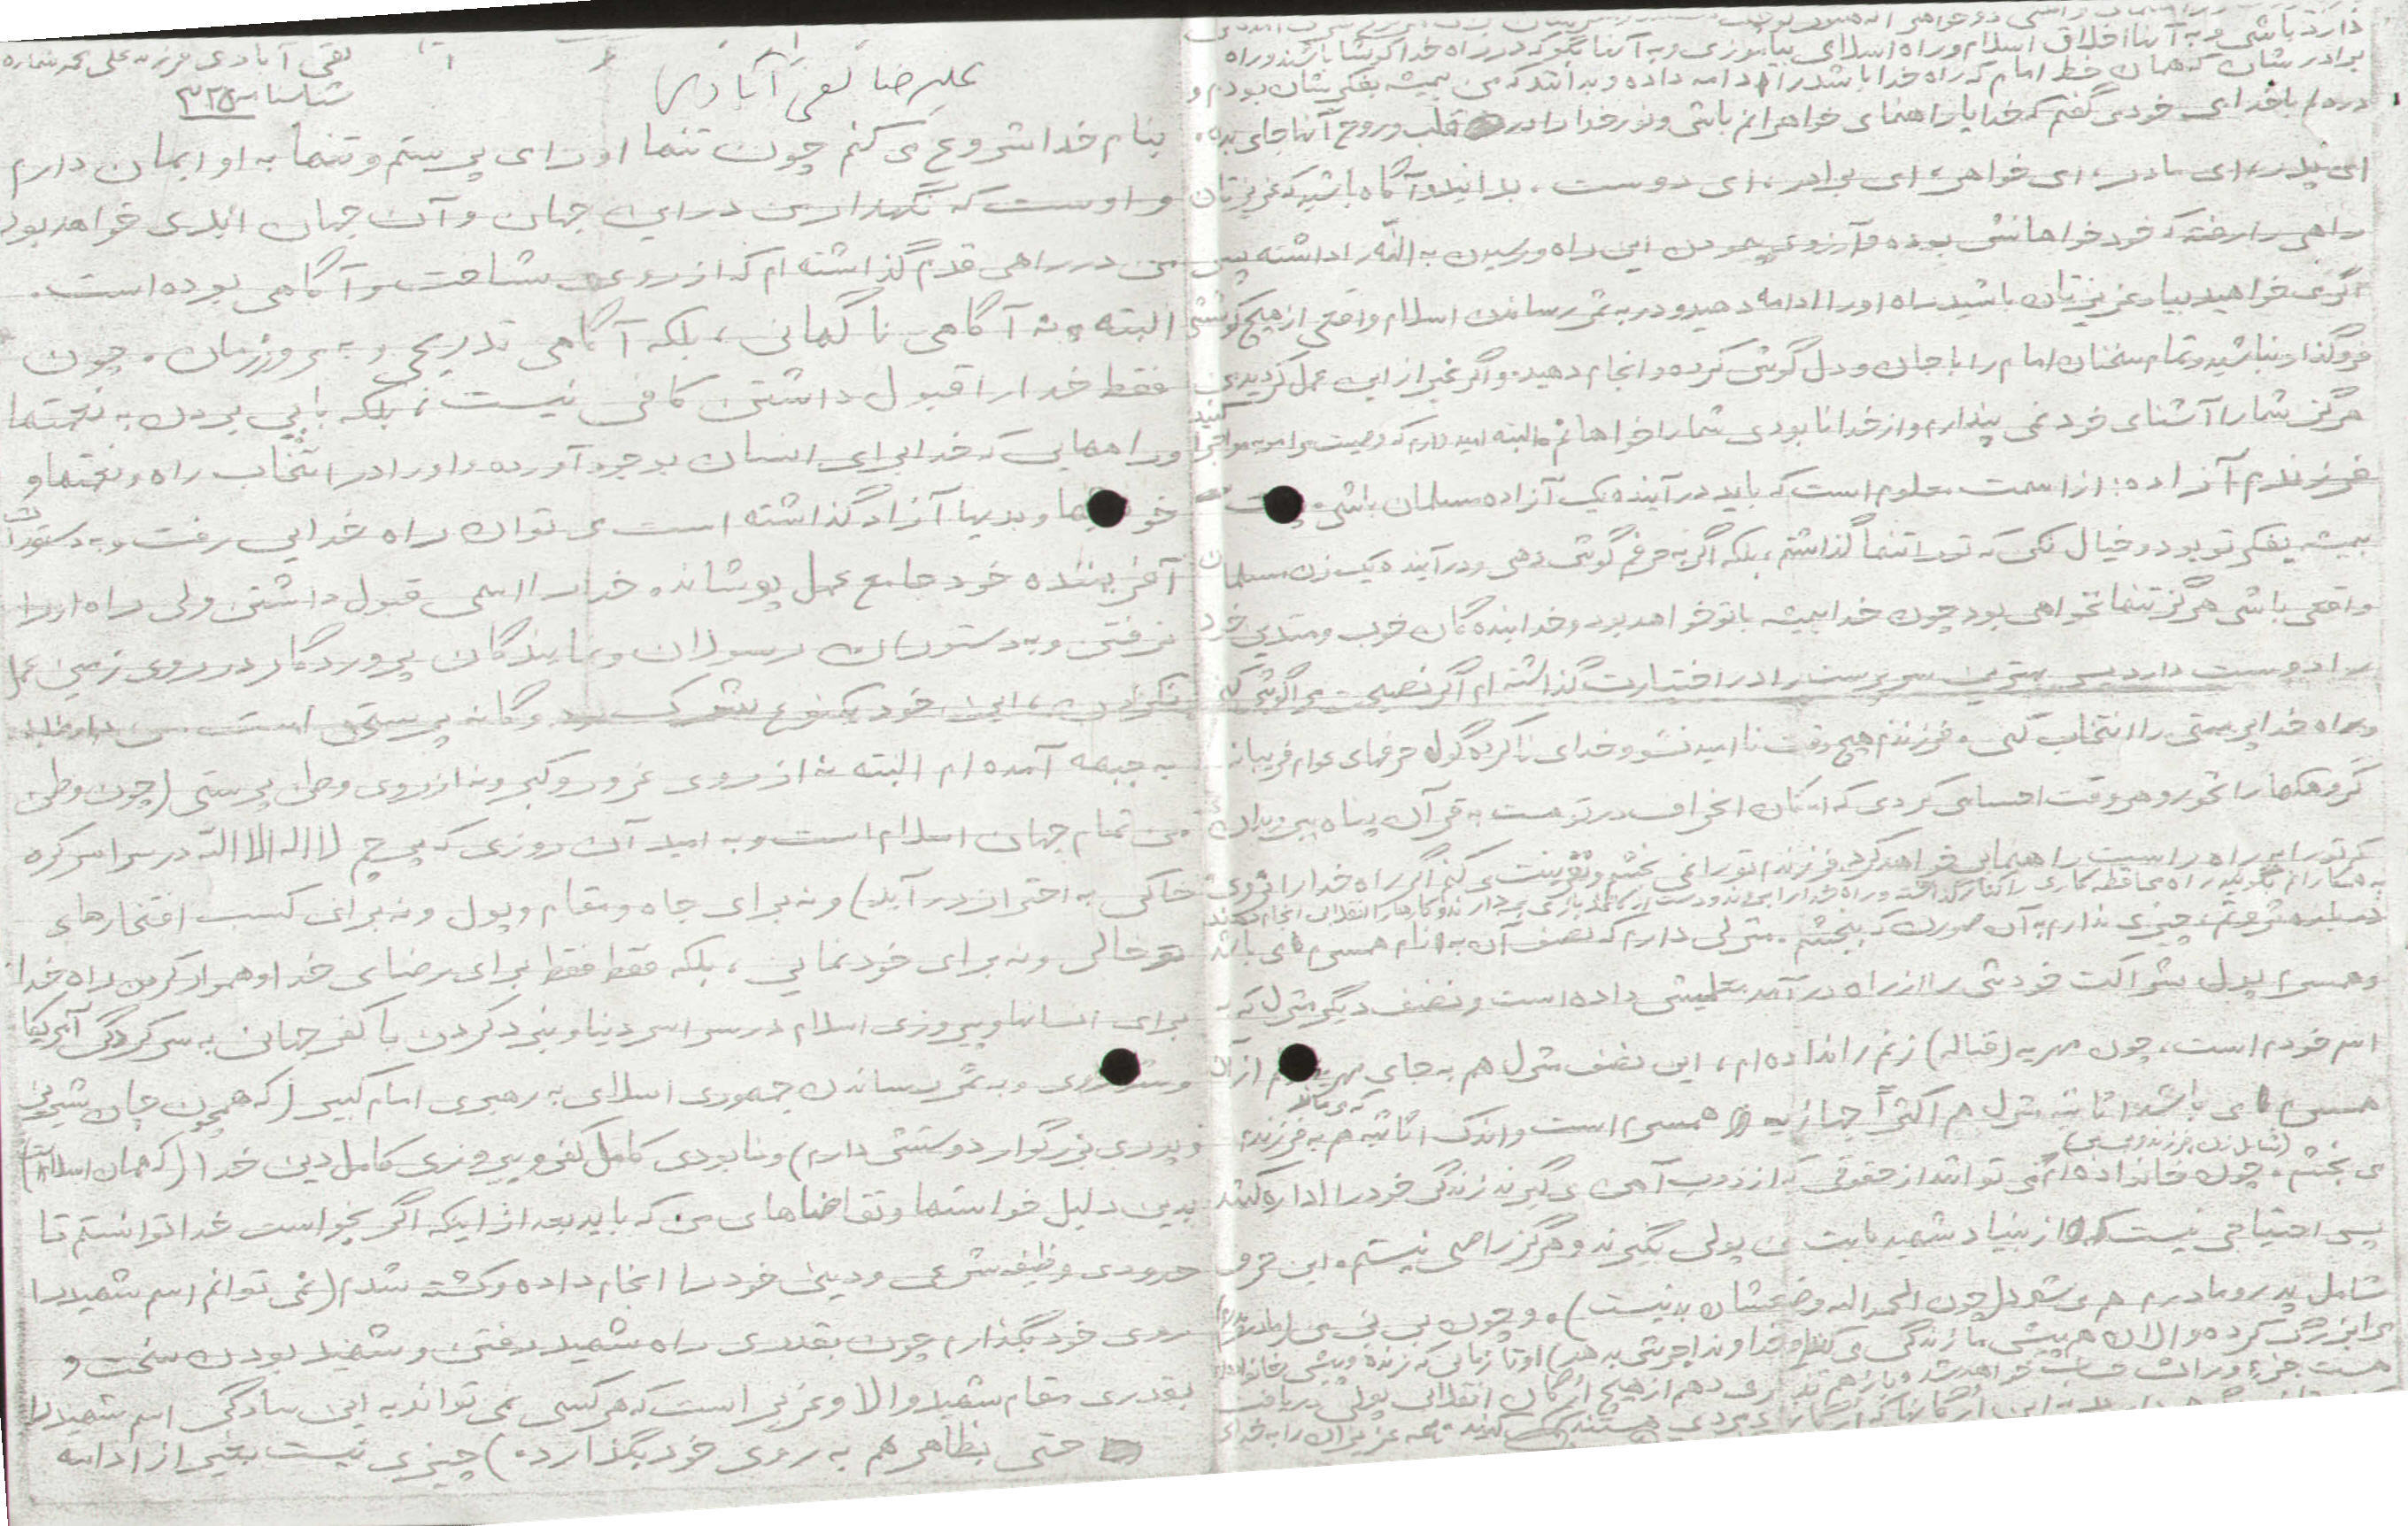 علیرضا تقی آبادی
تقی آبادی فرزند علی محمد شماره
شناسنامه ۳۲۵
بنام خدا شروع می کنم چون تنها او را می پرستم و تنها به او ایمان دارم
و اوست که نگهدار من در این جهان و آن جهان ابدی خواهد بود
من در راهی قدم گذاشته ام که از روی شناخت و آگاهی بوده است.
البته نه آگاهی ناگهانی، بلکه آگاهی تدریجی و به مرور زمان. چون
فقط خدا را قبول داشتن کافی نیست، بلکه با پی بردن به نعمتها
و راههایی که خدا برای انسان بوجود آورده و او را در انتخاب راه و نعمتها و
خوبیها و بدیها آزاد گذاشته است می توان راه خدایی رفت و به دستورات
آفریننده خود جامع عمل پوشاند. خدا را اسمی قبول داشتن ولی راه او را
نرفتن و به دستورات رسولان و نمایندگان پروردگار در روی زمین عمل
نکردن، این خود یکنوع شرک و دوگانه پرستی است. من داوطلبانه
به جبهه آمده ام البته نه از روی غرور و کبر و نه از روی وطن پرستی (چون وطن
من تمام جهان اسلام است و به امید آن روزی که پرچم لااله الا الله در سراسر کره
خاکی به اهتزاز در آید) و نه برای جاه و مقام و پول و نه برای کسب افتخارهای
تو خالی و نه برای خودنمایی، بلکه فقط فقط برای رضای خدا و هموار کردن راه خدا
برای انسانها و پیروزی اسلام در سراسر دنیا و نبرد کردن با کفر جهانی به سرکردگی آمریکا
و شوروی و به ثمر رساندن جمهوری اسلامی به رهبری امام کبیر (که همچون جان شیرین
و پدری بزرگوار دوستش دارم) و نابودی کامل کفر و پیروزی کامل دین خدا (که همان اسلام است)
بدین دلیل خواستها و تقاضاهای من که باید بعد از اینکه اگر بخواست خدا توانستم تا
حدودی وظیفه شرعی و دینی خود را انجام داده و کشته شدم (نمی توانم اسم شهید را
روی خود بگذارم چون بقدری راه شهید رفتن و شهید بودن سخت و
بقدری مقام شهید والا و عزیز است که هر کسی نمی تواند به این سادگی اسم شهید را
حتی بظاهر هم به روی خود بگذارد.) چیزی نیست بغیر از ادامه
باشی و به آنها اخلاق اسلام و راه اسلامی بیاموزی و به آنها بگو که در راه خدا کوشا باشند و راه
برادرشان که همان خط امام که راه خدا باشد را ادامه داده و بدانند که من همیشه بفکرشان بودم و
با خدای خود می گفتم که خدایا راهنمای خواهرانم باش و نور خدا را در قلب و روح آنها جای بده.
ای پدر، ای مادر، ای خواهر، ای برادر، ای دوست، بدانید و آگاه باشید که عزیزتان
راهی را رفته که خود خواهانش بوده و آرزوی پیمودن این راه و رسیدن به الله را داشته پس
اگر می خواهید بیاد عزیزتان باشید راه او را ادامه دهید و در به ثمر رساندن اسلام واقعی از هیچ کوششی
فروگذار نباشید و تمام سخنان امام را با جان و دل گوش کرده و انجام دهید. و اگر غیر از این عمل کردید من
هرگز شما را آشنای خود نمی پندارم و از خدا نابودی شما را خواهانم البته امید دارم که وصیت مرا مو به مو اجرا کنید
فرزندم آزاده: از اسمت معلوم است که باید در آینده یک آزاده مسلمان باشی.
همیشه بفکر تو بود و خیال نکن که تو را تنها گذاشتم، بلکه اگر به حرفم گوش دهی و در آینده یک زن مسلمان
واقعی باشی هرگز تنها نخواهی بود چون خدا همیشه با تو خواهد بود و خدا بنده گان خوب و متدین خود
را دوست دارد پس بهترین سرپرست را در اختیارت گذاشته ام اگر نصیحت مرا گوش کنی
و راه خداپرستی را انتخاب کنی. فرزندم هیچ وقت ناامید نشو و خدای ناکرده گول حرفهای عوام فریبانه
گروهکها را نخور و هر وقت احساس کردی که امکان انحراف در تو هست به قرآن پناه ببر
که تو را به راه راست راهنمایی خواهد کرد. فرزندم تو را نمی بخشم و نفرینت می کنم اگر راه خدا را نروی
به همکارانم بگوئید راه محافظه کاری را کنار گذاشته و راه خدا را بروند و دست از بازی بردارند و کارها را انقلابی انجام دهند
چیزی ندارم به آن صورت که ببخشم. منزلی دارم که نصف آن به نام همسرم می باشد
و همسرم پول شراکت خودش را از راه در آمد معلمیش داده است و نصف دیگر منزل که به
اسم خودم است، چون مهریه (قباله) زنم را نداده ام، این نصف منزل هم به جای مهریه از آن
همسرم می باشد. اثاثیه منزل هم اکثرآ جهازیه همسرم است و اندک اثاثیه هم به فرزندم
(شامل زن و فرزندم می)
می بخشم. چون خانواده ام می توانند از حقوقی که از ذوب آهن می گیرند زندگی خود را اداره کنند
پس احتیاجی نیست که از بنیاد شهید بابت من پولی بگیرند و هرگز راضی نیستم. این حرف
شامل پدر و مادرم هم می شود (چون الحمدالله وضعشان بد نیست). و چون بی بی من (مادربزرگم)
مرا بزرگ کرده و الان هم پیش ما زندگی می کند (خداوند اجرش بدهد) او تا زمانی که زنده و پیش خانواده ام
هست جزء وراث حساب خواهد شد و باز هم تذکر می دهم از هیچ ارگان انقلابی پولی دریافت